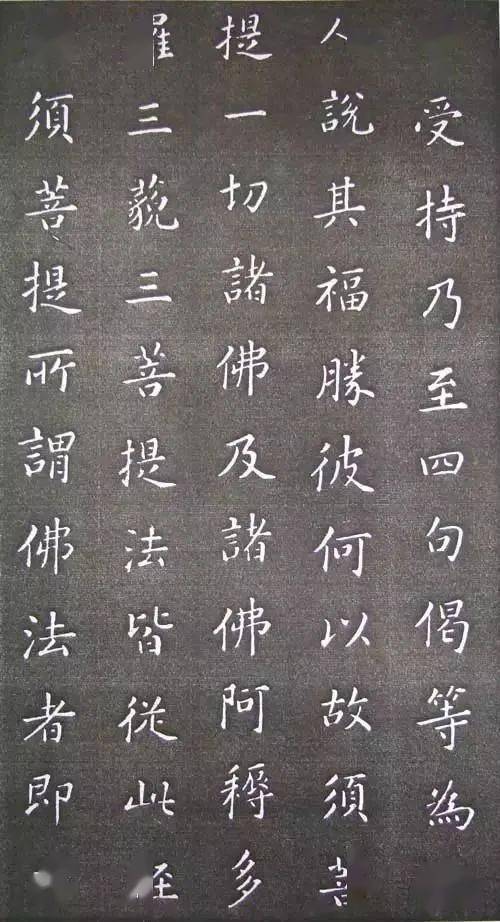 受持乃至四句偈等為
人說其福勝彼何以故須菩
提一切諸佛及諸佛阿耨多
羅三藐三菩提法皆從此
須菩提所謂佛法者即